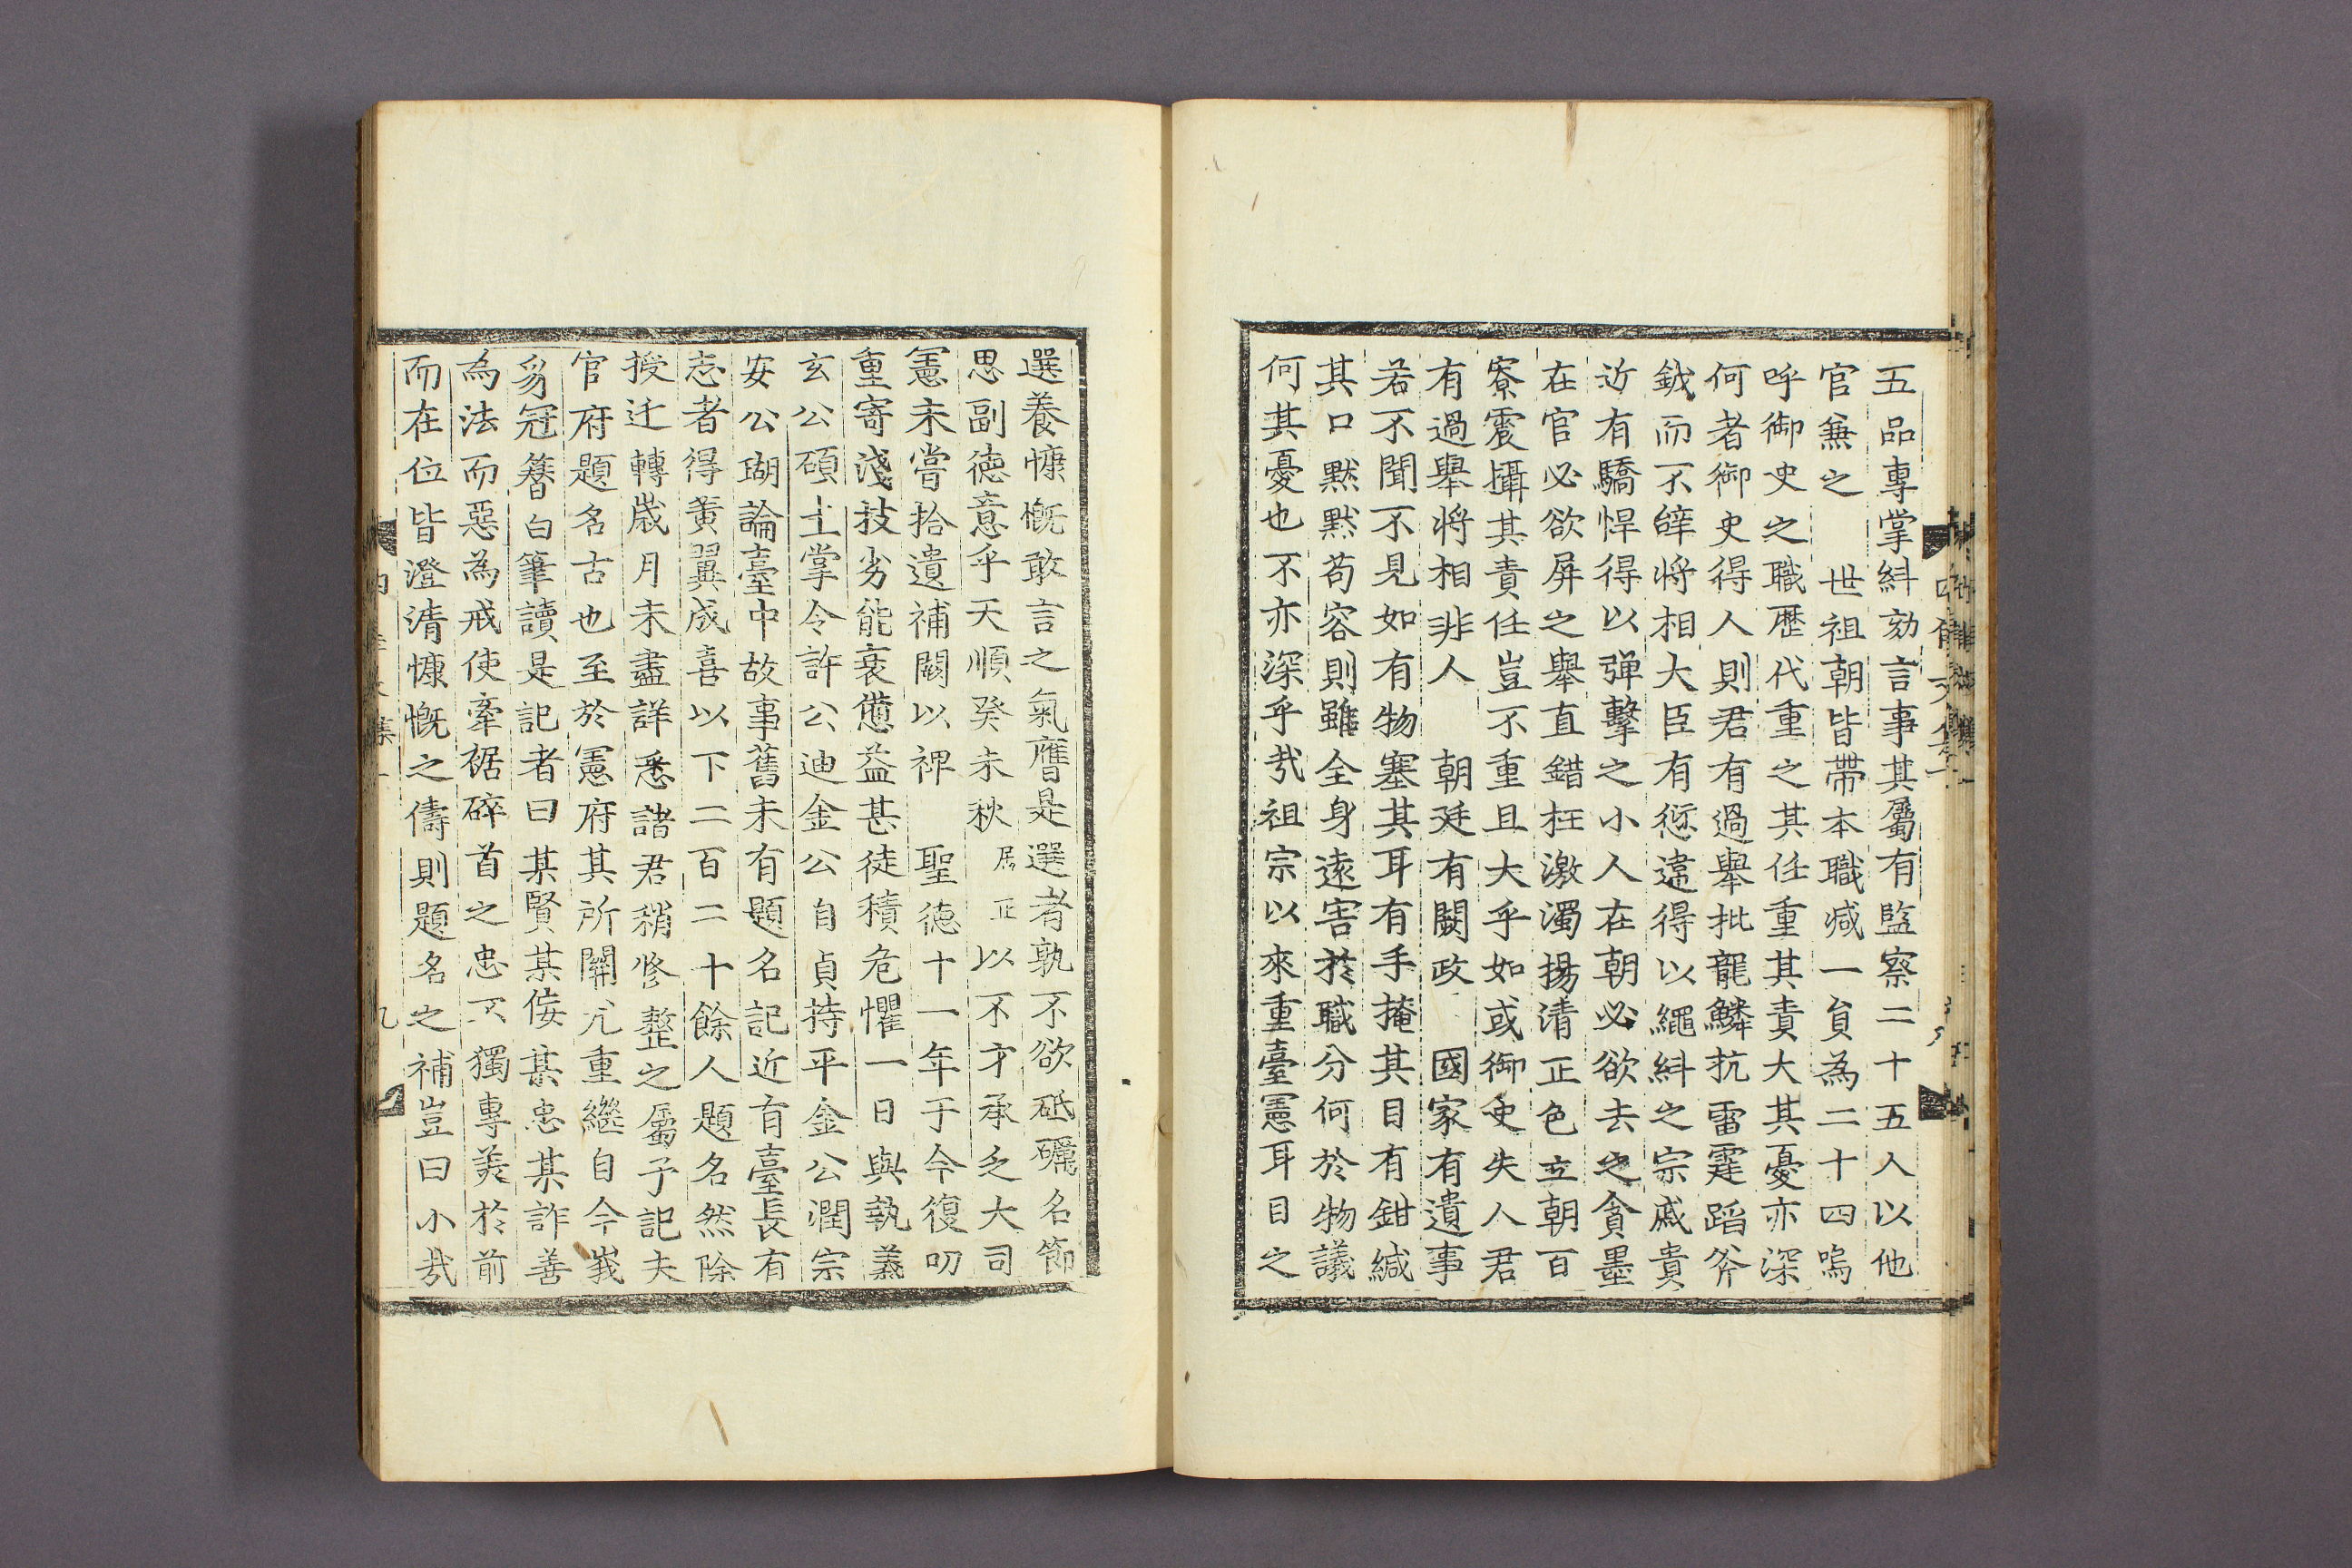 五品專掌糾劾言事其屬有監察二十五人以他
官兼之　世祖朝皆帶本職减一負為二十四嗚
呼御史之職歷代重之其任重其責大其憂亦深
何者御史得人則君有過舉批龍鱗抗雷霆蹈斧
鉞而不辭將相大臣有愆違得以繩糾之宗戚貴
近有驕悍得以弾擊之小人在朝必欲去之貪墨
在官必欲屏之舉直錯枉激濁揚清正色立朝百
寮震攝其責任豈不重且大乎如或御史失人君
有過舉將相非人　朝廷有闕政　國家有遺事
若不聞不見如有物塞其耳有手掩其目有鉗緘
其口默默苟容則雖全身遠害於職分何於物議
何其憂也不亦深乎㢤祖宗以來重臺憲耳目之
選養慷慨敢言之氣膺是選者孰不欲砥礪名節
思副德意乎天順癸未秋居正以不才承乏大司
憲未嘗拾遺補闕以裨　聖德十一年于今復叨
重寄淺技劣能衰憊益甚徒積危懼一日與執義
玄公碩圭掌令許公迪金公自貞持平金公潤宗
安公瑚論臺中故事舊未有題名記近有臺長有
志者得黃翼成喜以下二百二十餘人題名然除
授迁轉歲月未盡詳悉諸君稍修整之屬予記夫
官府題名古也至於憲府其所關尤重繼自今峩
豸冠簪白筆讀是記者曰某賢某侫某忠某詐善
為法而惡為戒使牽裾碎首之忠不獨專羙於前
而在位皆澄清慷慨之儔則題名之補豈曰小㢤
九